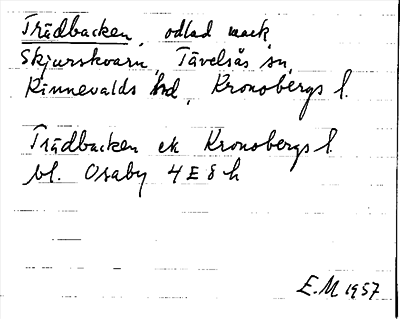 Trädbacken, odlad mark,
Skjurskvarn, Tävelsås sn,
Kinnevalds hd, Kronobergs l.
Trädbacken ek Kronobergs l.
bl. Osaby 4 E 8 h
E.M 1957